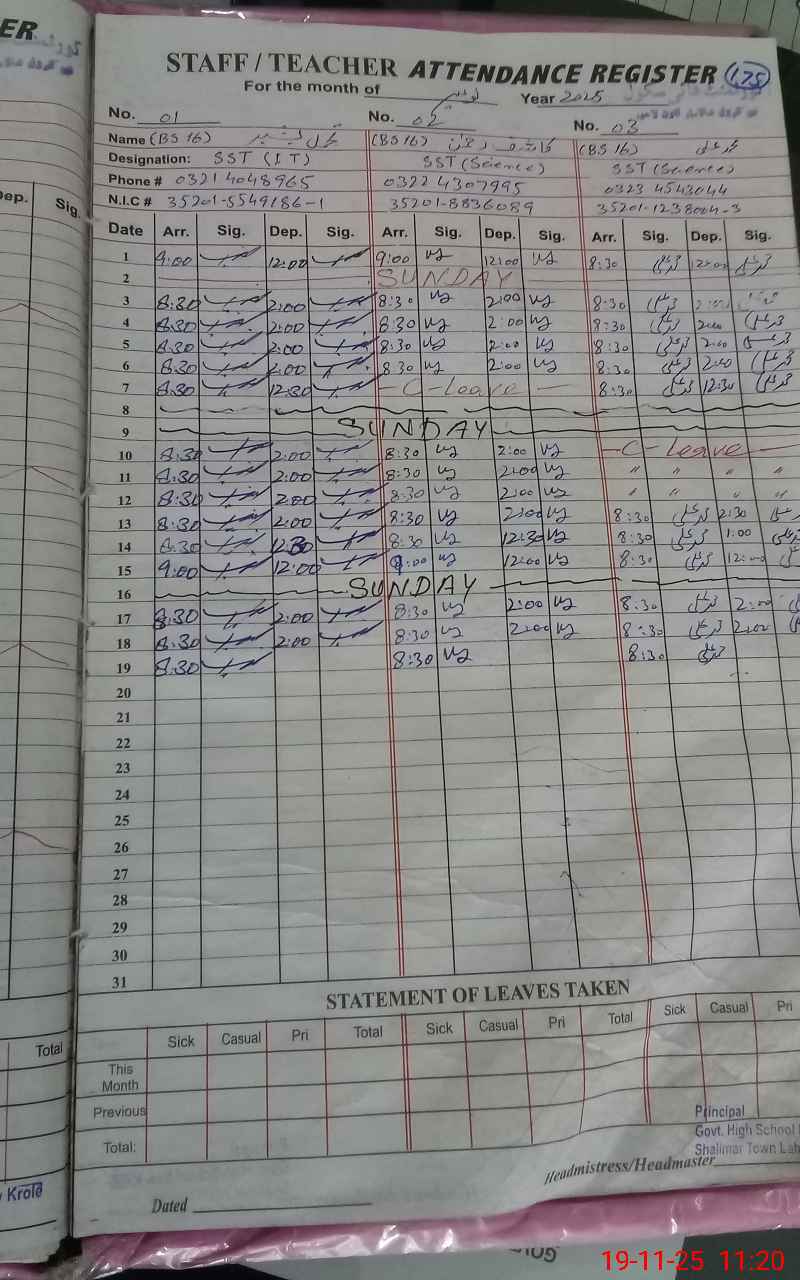 ER
STAFF / TEACHER ATTENDANCE REGISTER 175
For the month of نومبر Year 2025
No. 01 No. 02 No. 03
Name (BS 16) (BS 16) (BS 16)
Designation: SST (IT) SST (Science) SST (Science)
Phone # 0321 4048965 0322 4307995 0323 4543044
N.I.C # 35201-5549186-1 35201-8836089 35201-1238004-3
Dep. Sig.
Date Arr. Sig. Dep. Sig. Arr. Sig. Dep. Sig. Arr. Sig. Dep. Sig.
1 9:00 12:00 9:00 12:00 8:30 12:00
2 SUNDAY
3 8:30 2:00 8:30 2:00 8:30 2:00
4 8:30 2:00 8:30 2:00 8:30 2:00
5 8:30 2:00 8:30 2:00 8:30 2:00
6 8:30 2:00 8:30 2:00 8:30 2:00
7 8:30 12:30 — C-leave — 8:30 12:30
8
9 SUNDAY
10 8:30 2:00 8:30 2:00 — C-leave —
11 8:30 2:00 8:30 2:00 " " " "
12 8:30 2:00 8:30 2:00 " " " "
13 8:30 2:00 8:30 2:00 8:30 2:30
14 8:30 12:30 8:30 12:30 8:30 1:00
15 9:00 12:00 9:00 12:00 8:30 12:00
16 SUNDAY
17 8:30 2:00 8:30 2:00 8:30 2:00
18 8:30 2:00 8:30 2:00 8:30 2:00
19 8:30 8:30 8:30
20
21
22
23
24
25
26
27
28
29
30
31
STATEMENT OF LEAVES TAKEN
Sick Casual Pri Total Sick Casual Pri Total Sick Casual Pri
Total
This Month
Previous
Total:
Principal
Govt. High School
Shalimar Town Lah
Headmistress/Headmaster
Dated
Krole
19-11-25 11:20